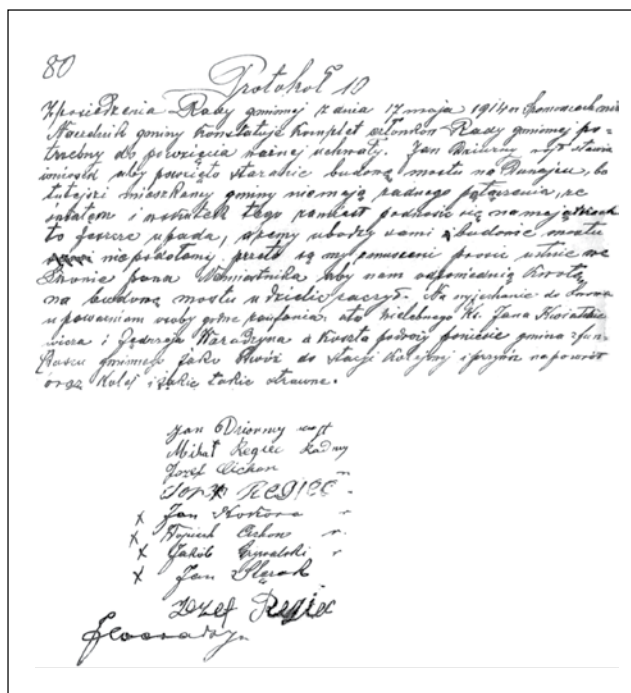 80
Protokół 10
Z posiedzenia Rady gminnej z dnia 17 maja 1914 Sromowcach niż
Naczelnik gminy konstatuje komplet członków Rady gminnej po-
trzebny do powzięcia ważnej uchwały. Jan Dziurny wójt stawia
wniosek aby powzięto staranie budową mostu na Dunajcu, bo
tutejsi mieszkańcy gminy niemają żadnego połączenia, ze
światem i wskutek tego zamiast podnosić się na majątkach
to jeszcze upada, a żeśmy ubodzy sami budowie mostu
niepodołamy przeto są my zmuszeni prosić ustnie we
Lwowie pana Namiestnika aby nam odpowiednią kwotą
na budową mostu udzielić raczył. Na wyjechanie do Lwowa
upoważniam osoby godne zaufania: oto Wielebnego Ks. Jana Kwiatkie
wicza i Jędrzeja Waradzyna a koszta podroży poniesie gmina z fun
duszu gminnego jako dwóz do stacji kolejnej i przywóz napowrót
oraz kolej i takie strawne.
Jan Dziurny wójt
Michał Regiec Radny
Józef Cichoń "
REGIEC "
x Jan Kostora "
x Wojciech Cichoń r.
x Jakób r
x Jan Ślęzak
Józef Regiec